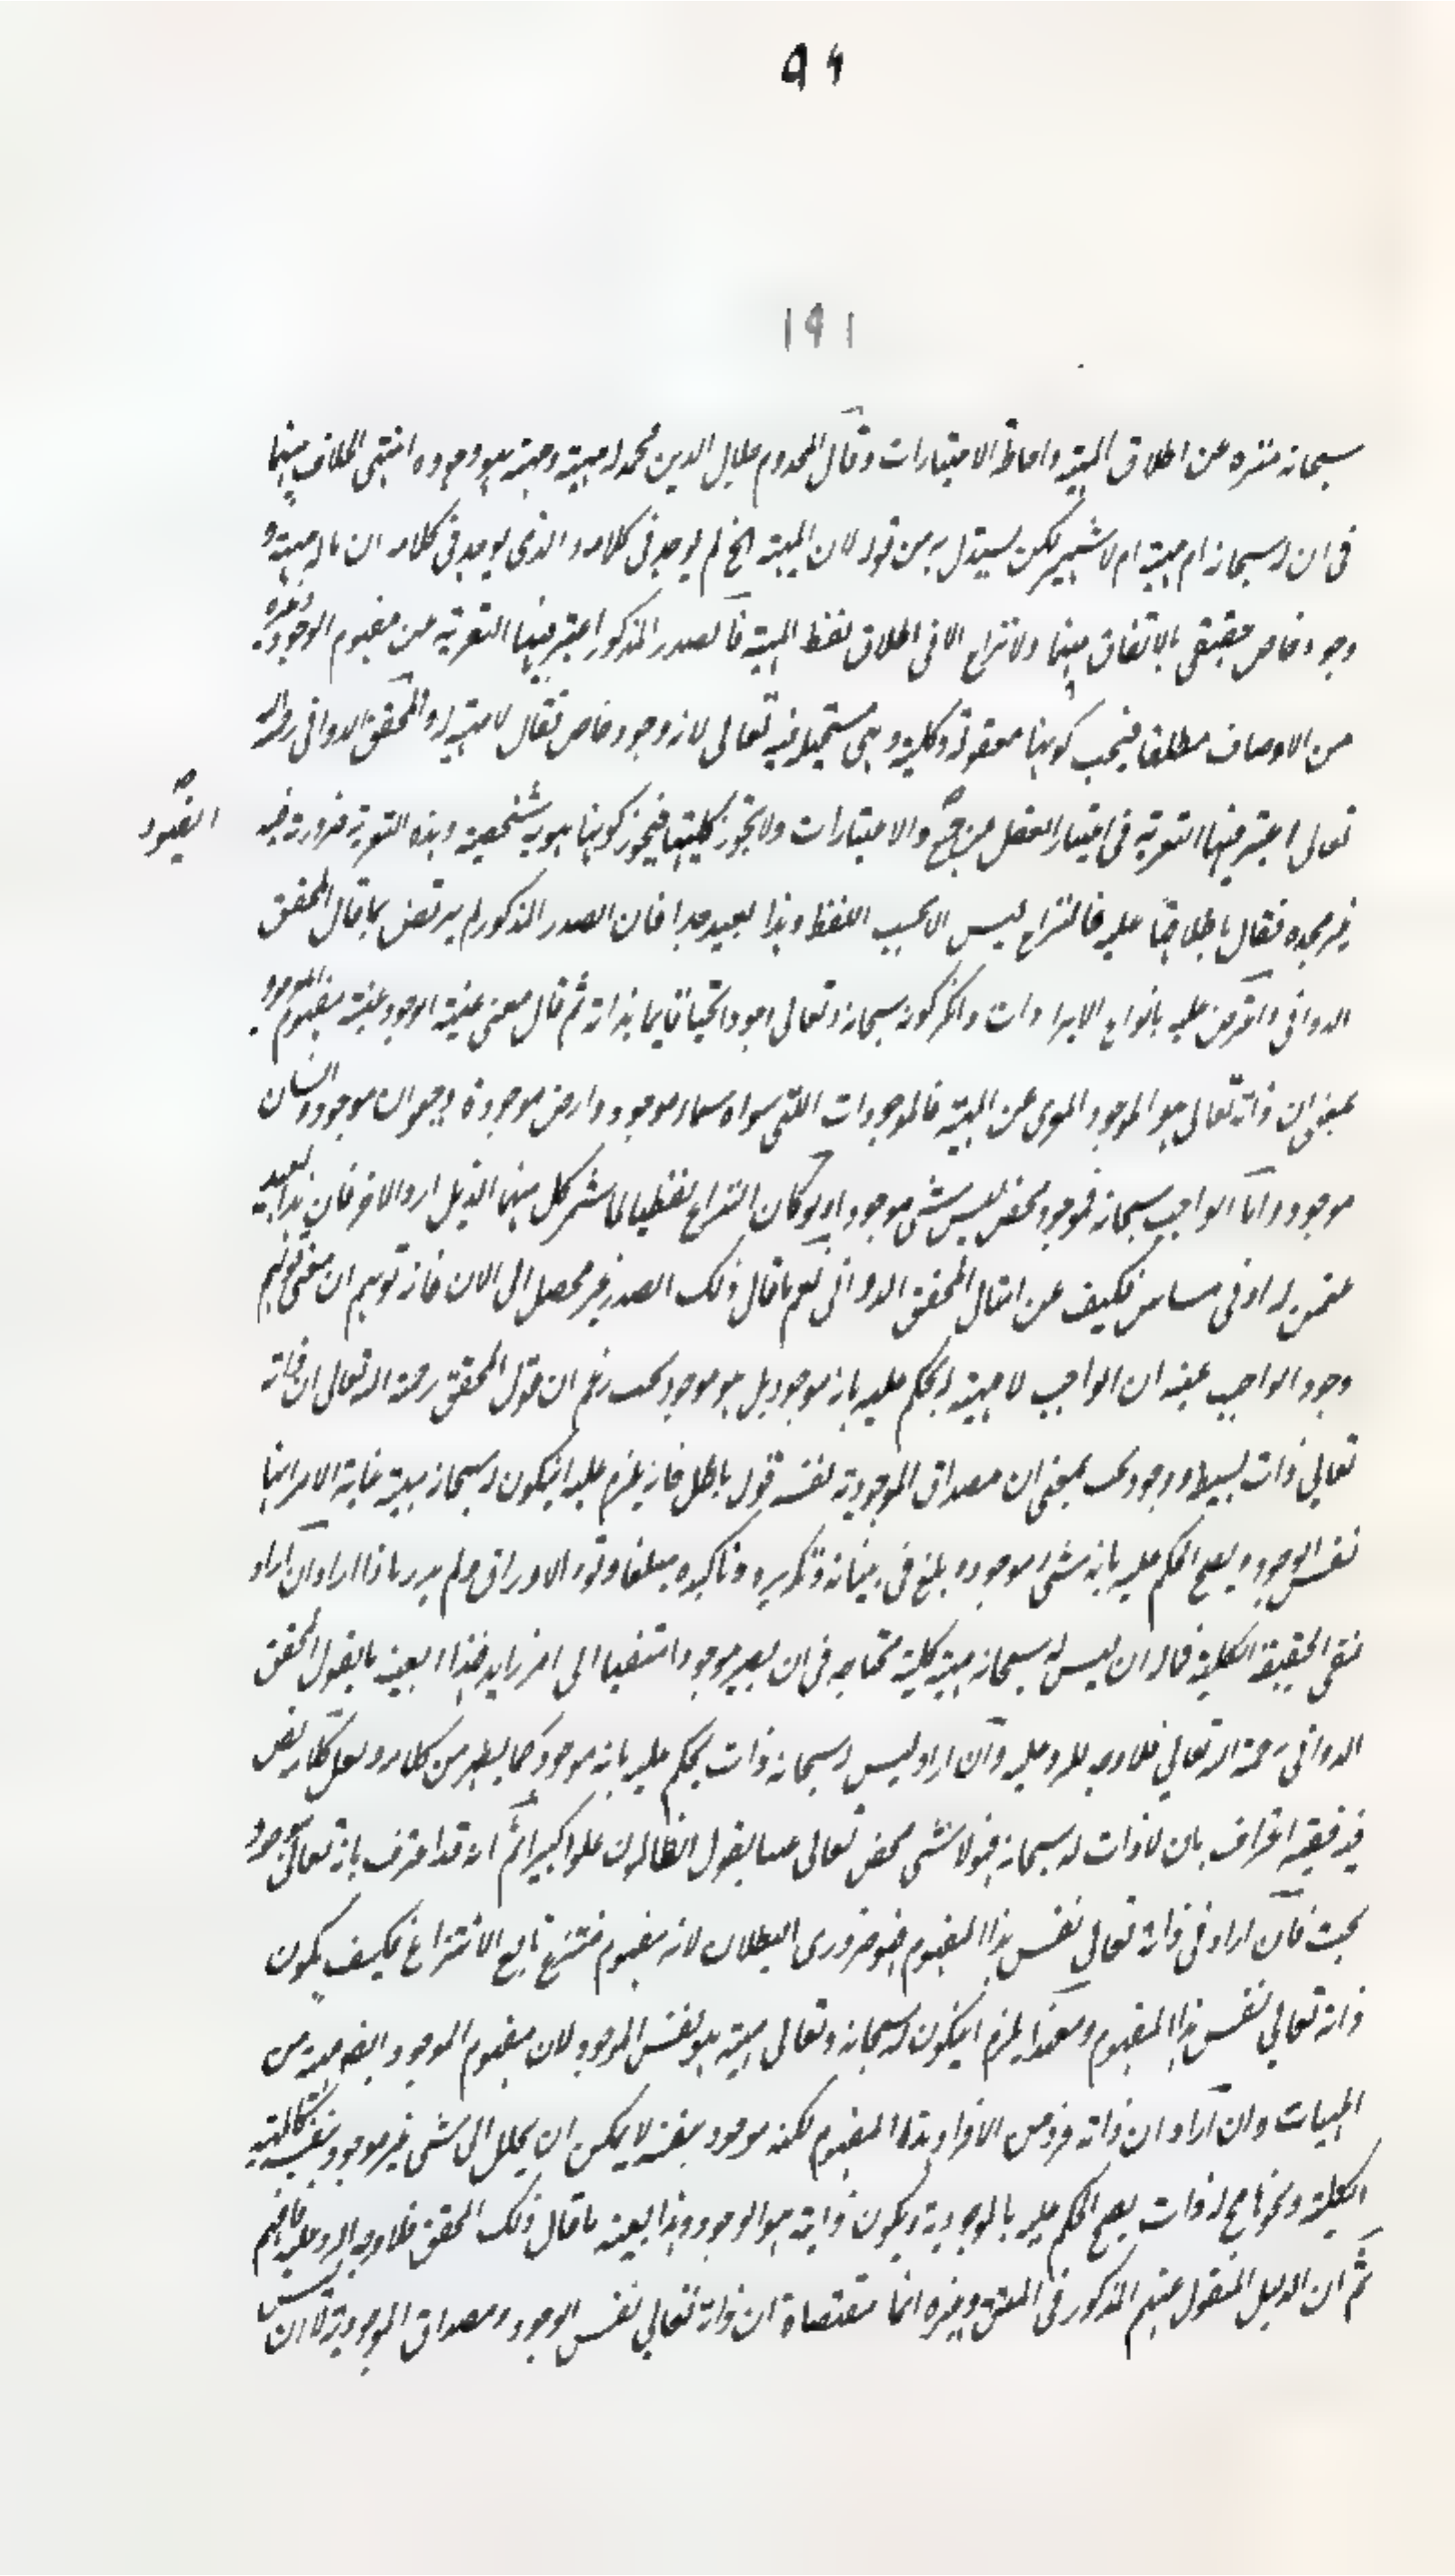 ٩٤
١٩١
سبحانه منزه عن اطلاق المهية واحاطة الاعتبارات وقال المخدوم جلال الدين محمد له مهية ومهيته هو وجوده انتهى الخلاف بينهما
فى ان له سبحانه ام مهية ام لا شهير لكن يستدل به من قوله لان المهية الخ لم يوجد فى كلامه والذى يوجد فى كلامه ان ماله مهية و
وجود خاص حقيقى بالاتفاق بينهما ولا نزاع الا فى اطلاق لفظ المهية فالصدر المذكور اعتبر فيها التعرية عن مفهوم الوجود وغيره
من الاوصاف مطلقا فيجب كونها معقولة وكلية وهى مستحيلة فيه تعالى لانه وجود خاص فقال لا مهية له والمحقق الدوانى رحمه الله
تعالى اعتبر فيها التعرية فى اعتبار العقل عن جميع والاعتبارات ولا تجوز كليتها فيجوز كونها هوية شخصية وهذه التعرية ضرورية فيه
القيود
غير مجده فقال باطلاقها عليه فالنزاع ليس الا بحسب اللفظ وهذا بعيد جدا فان الصدر المذكور لم يرتض بما قال المحقق
الدوانى واعترض عليه بانواع الايرادات وانكر كونه سبحانه وتعالى وجودا بحتا قائما بذاته ثم قال معنى عينية الوجود عينية مفهوم الموجود
بمعنى ان ذاته تعالى هو الموجود المعرى عن المهية فالموجودات التى سواه سماء موجود وارض موجودة وحيوان موجود وانسان
موجود واما الواجب سبحانه فموجود محض ليس شئ موجود او لو كان النزاع لفظيا لما شمر كل منهما الذيل لرد الاخر فان هذا بعيد
عمن له ادنى مساس فكيف عن امثال المحقق الدوانى نعم ما قال ذلك الصدر غير محصل الى الان فانه توهم ان معنى قولهم
وجود الواجب عينه ان الواجب لا مهية له يحكم عليه بانه موجود بل هو موجود بحت زعم ان قول المحقق رحمه الله تعالى ان ذاته
تعالى ذات بسيط ووجود بحت بمعنى ان مصداق الموجودية نفسه قول باطل فانه يلزم عليه ان يكون له سبحانه مهية غاية الامر انها
نفس الوجود ويصح الحكم عليه بانه شئ موجود وبلغ فى بيانه وتكريره وتاكيده مبلغا وتود الاوراق ولم يدر ماذا اراد ان اراد
نفى الحقيقة الكلية فاراد ان ليس له سبحانه مهية كلية محتاجة فى ان يصير موجودا متضيفا الى امر زايد فهذا بعينه ما يقول المحقق
الدوانى رحمه الله تعالى فلا وجه للرد عليه وان اراد ليس له سبحانه ذات يحكم عليه بانه موجود كما يظهر من كلامه ولعل كلامه نص
فيه ففيه اعتراف بان لا ذات له سبحانه فهو لا شئ محض تعالى عما يقول الظالمون علوا كبيرا ثم انه قد اعترف بانه تعالى موجود
بحت فان اراد فى ذاته تعالى نفس هذا المفهوم فهو ضرورى البطلان لانه مفهوم منتزع تابع الانتزاع فكيف يكون
ذاته تعالى نفس هذا المفهوم ومعهذا يلزم ان يكون له سبحانه وتعالى مهية هو نفس الموجود لان مفهوم الموجود ايضا مهية من
المهيات وان اراد ان ذاته فرد من الافراد لهذا المفهوم لكنه موجود بنفسه لا يمكن ان يحلل الى شئ غير موجود بنفسه كالمهية
الكلية ونحوها مع له ذات يصح الحكم عليه بالموجودية ويكون ذاته هو الوجود وهذا بعينه ما قال ذلك المحقق فلا وجه للرد عليه فافهم
ثم ان الدليل المنقول عنهم المذكور فى المتن وغيره انما مقتضاه ان ذاته تعالى نفس الوجود ومصداق الموجودية لا ان ليس